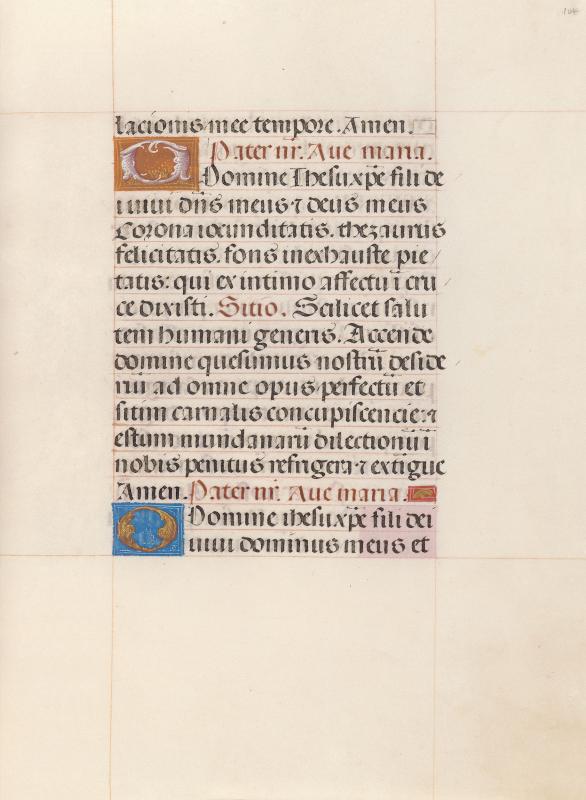 104
lacionis mee tempore. Amen.
Pater nr̄. Aue maria.
O Domine Ihesu xp̄e fili de
i uiui dn̄s meus ⁊ deus meus
Corona iocunditatis. thezaurus
felicitatis. fons inexhauste pie
tatis: qui ex intimo affectu ī cru
ce dixisti. Sitio. Scilicet salu
tem humani generis. Accende
domine quesumus nostrū deside
riū ad omne opus perfectū et
sitim carnalis concupiscencie: ⁊
estum mundanarū dilectionū ī
nobis penitus refrigera ⁊ extīgue
Amen. Pater nr̄. Aue maria.
O Domine ihesu xp̄e fili dei
uiui dominus meus et